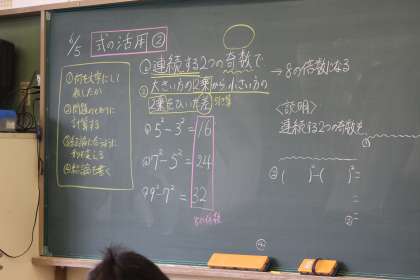 6/5 式の活用②
①何を文字にして
表したか
②問題のとおりに
計算する
③結論に合うように
④結論を書く
①連続する2つの奇数で
②大きい方の2乗から小さい方の
2乗をひいた差
→8の倍数になる
5²-3²=16
7²-5²=24
9²-7²=32
8の倍数
<証明>
連続する2つの奇数を
①
②( )²-( )²=
=
②=